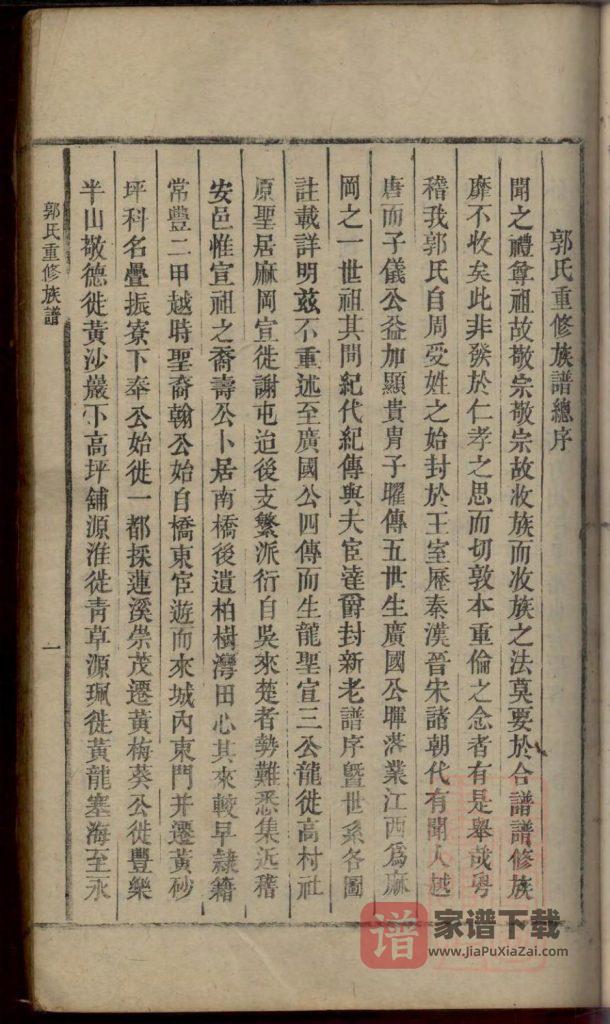 郭氏重修族譜總序
聞之禮尊祖故敬宗敬宗故收族而收族之法莫要於合譜譜修族
靡不收矣此非發於仁孝之思而切敦本重倫之念者有是舉哉粵
稽我郭氏自周受姓之始封於王室歷秦漢晉宋諸朝代有聞人越
唐而子儀公益加顯貴胄子曜傳五世生廣國公暉落業江西爲麻
岡之一世祖其間紀代紀傳與夫宦達爵封新老譜序暨世系各圖
註載詳明茲不重述至廣國公四傳而生龍聖宣三公龍徙高村社
原聖居麻岡宣徙謝屯迨後支繁派衍自吳來楚者勢難悉集近稽
安邑惟宣祖之裔壽公卜居南橋後遺柏樹灣田心其來較早隸籍
常豐二甲越時聖裔翰公始自橋東宦遊而來城內東門并遷黃砂
坪科名疊振寮下奉公始徙一都採蓮溪崇茂遷黃梅葵公徙豐樂
半山敬德徙黃沙巖下高坪舖源淮徙青草源珮徙黃龍塞海至永
郭氏重修族譜
一
谱
家谱下载
www.JiaPuXiaZai.com